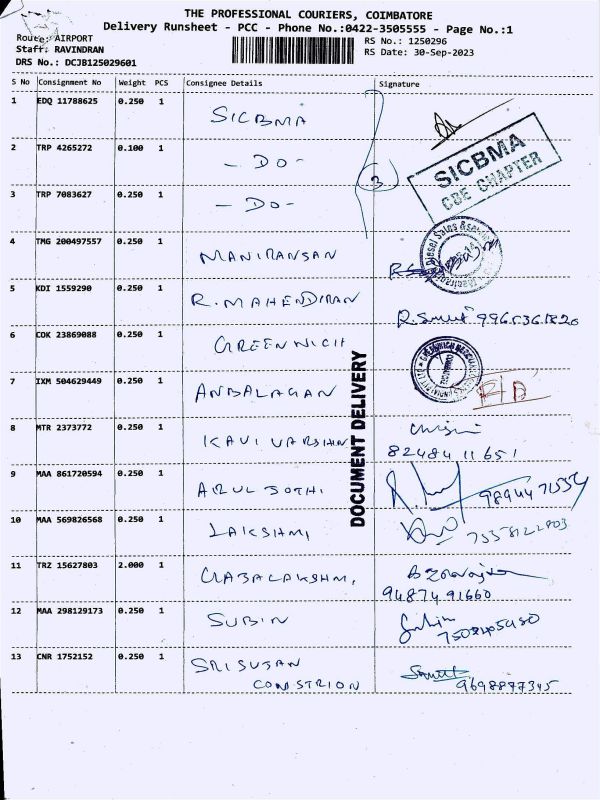 THE PROFESSIONAL COURIERS, COIMBATORE
Delivery Runsheet - PCC - Phone No.:0422-3505555 - Page No.:1
Route: AIRPORT
RS No.: 1250296
Staff: RAVINDRAN
RS Date: 30-Sep-2023
DRS No.: DCJB125029601
S No Consignment No Weight PCS Consignee Details Signature
1 EDQ 11788625 0.250 1 SICBMA
SICBMA
CBE CHAPTER
2 TRP 4265272 0.100 1 - DO -
3
3 TRP 7083627 0.250 1 - DO -
4 TMG 200497557 0.250 1 MANIRANSAN
5 KDI 1559290 0.250 1 R. MAHENDIRAN
6 COK 23869088 0.250 1 GREENWICH
7 IXM 504629449 0.250 1 ANBALAGAN
DOCUMENT DELIVERY
8 MTR 2373772 0.250 1 KAVI VARSHINI
82484 11651
9 MAA 861720594 0.250 1 ARUL JOTHI
10 MAA 569826568 0.250 1 LAKSHMI
11 TRZ 15627803 2.000 1
94874 91660
12 MAA 298129173 0.250 1 SUBIN
13 CNR 1752152 0.250 1 SRI SUJAN
CONSTRION
9698877345